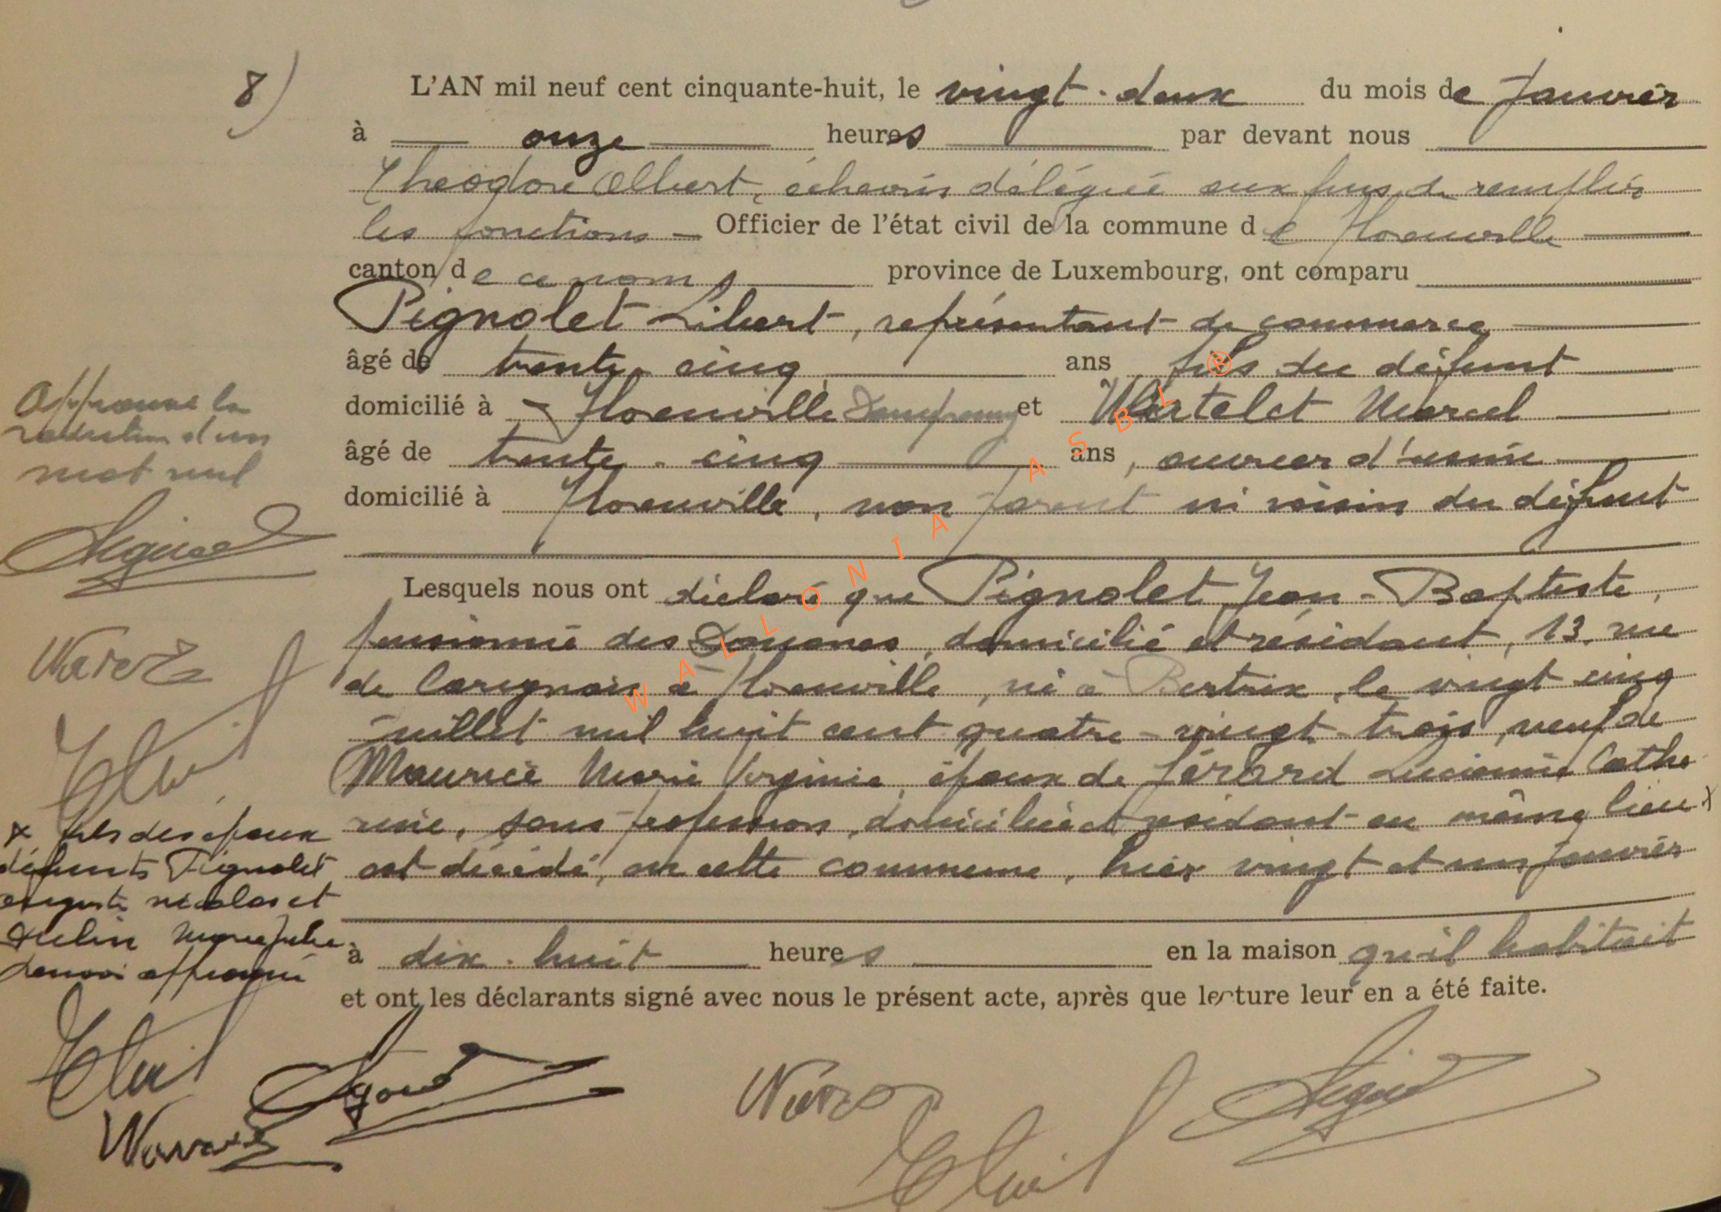 8)
L'AN mil neuf cent cinquante-huit, le vingt-deux du mois de Janvier
à onze heures par devant nous
Théodore Albert, échevin délégué aux fins de remplir
les fonctions Officier de l'état civil de la commune de Florenville
canton de ce nom, province de Luxembourg, ont comparu
Pignolet Libert, représentant de commerce
âgé de trente-cinq ans fils du défunt
domicilié à Florenville et Marcel
âgé de trente-cinq ans, ouvrier d'usine
domicilié à Florenville, non parent ni voisin du défunt
Approuvé la
rature d'un
mot nul
Lesquels nous ont déclaré que Pignolet Jean-Baptiste,
pensionné des Douanes, domicilié et résidant, 13, rue
de Carignan à Florenville, né à Bertrix, le vingt cinq
juillet mil huit cent quatre-vingt-trois, veuf de
Maurice Marie Virginie, époux de Gérard Lucienne Cathe
rine, sans profession, domiciliée et résidant au même lieu x
est décédé, en cette commune, hier vingt et un janvier
x fils des époux
défunts Pignolet
Auguste Nicolas et
Marie Julie
renvoi approuvé
à dix-huit heures en la maison qu'il habitait
et ont les déclarants signé avec nous le présent acte, après que lecture leur en a été faite.
WALLONIA ASBL ®